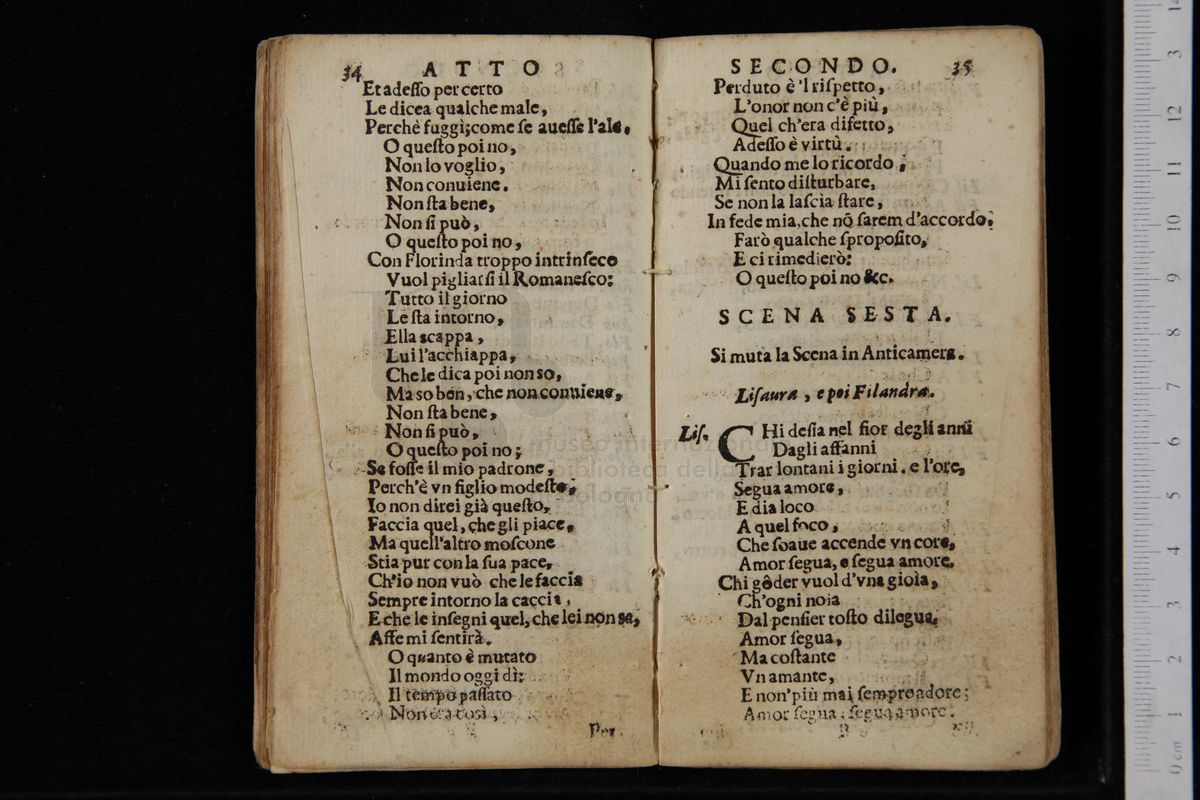 34 ATTO
Et adeſſo per certo
Le dicea qualche male,
Perchè fuggì; come ſe aueſſe l'ale.
O queſto poi no,
Non lo voglio,
Non conuiene.
Non ſta bene,
Non ſi può,
O queſto poi no,
Con Florinda troppo intrinſeco
Vuol pigliarſi il Romaneſco:
Tutto il giorno
Le ſta intorno,
Ella scappa,
Lui l'acchiappa,
Che le dica poi non so,
Ma so ben, che non conuiene,
Non ſta bene,
Non ſi può,
O queſto poi no;
Se foſſe il mio padrone,
Perch'è vn figlio modeſto,
Io non direi già queſto,
Faccia quel, che gli piace,
Ma quell'altro moſcone
Stia pur con la ſua pace,
Ch'io non vuò che le faccia
Sempre intorno la caccia,
E che le inſegni quel, che lei non sa,
Affe mi ſentirà.
O quanto è mutato
Il mondo oggi dì:
Il tempo paſſato
Non era così,
Per.
SECONDO. 35
Perduto è 'l riſpetto,
L'onor non c'è più,
Quel ch'era difetto,
Adeſſo è virtù.
Quando me lo ricordo,
Mi ſento diſturbare,
Se non la laſcia ſtare,
In fede mia, che nõ ſarem d'accordo.
Farò qualche ſpropoſito,
E ci rimedierò:
O queſto poi no &c.
SCENA SESTA.
Si muta la Scena in Anticamera.
Liſaura, e poi Filandra.
Liſ. CHi deſia nel fior degli anni
Dagli affanni
Trar lontani i giorni. e l'ore,
Segua amore,
E dia loco
A quel foco,
Che ſoaue accende vn core,
Amor ſegua, e ſegua amore.
Chi gôder vuol d'vna gioia,
Ch'ogni noia
Dal penſier toſto dilegua,
Amor ſegua,
Ma coſtante
Vn amante,
E non più mai ſempre adore;
Amor ſegua, ſegua amore.
B